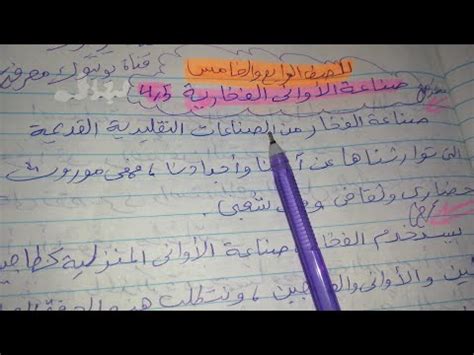 قناة يوتيوب معرفتي
للصف الرابع والخامس
صناعة الأواني الفخارية 4/5
صناعة الفخار من الصناعات التقليدية القديمة
التي توارثناها عن وأجدادنا، فهي موروث
حضاري وثقافي شعبي.
يستخدم الفخار صناعة الأواني المنزلية كطاجين
والأواني، وتتطلب هذه الحرفة